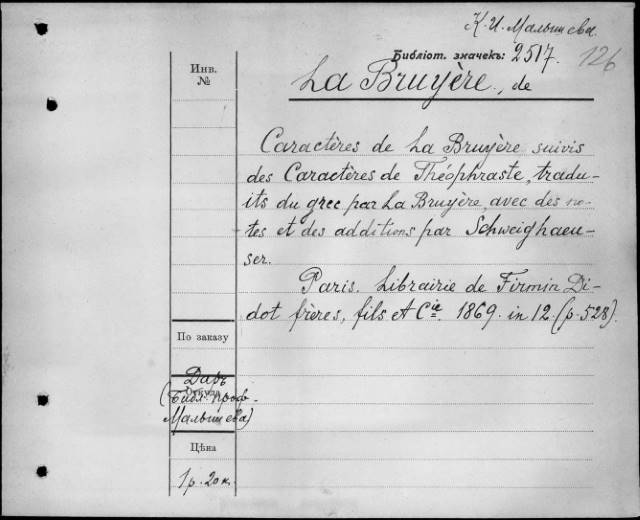 К. И. Малышева.
Библіот. значекъ: 2517.
126
Инв.
№
La Bruyère, de
Caractères de La Bruyère suivis
des Caractères de Théophraste, tradu-
its du grec par La Bruyère, avec des no-
tes et des additions par Schweighaeu-
ser.
Paris. Librairie de Firmin Di-
dot frères, fils et Cie. 1869. in 12. (p. 528).
По заказу
Даръ
Откуда
(Библ. проф.
Малышева)
Цѣна
1 р. 20 к.